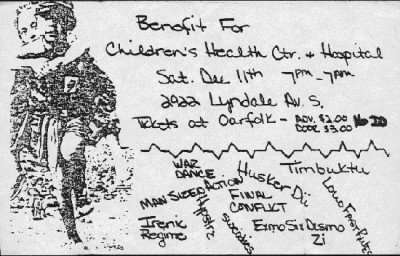 Benefit For
Children's Health Ctr. + Hospital
Sat. Dec 11th 7PM - 7AM
2922 Lyndale Av. S.
Tickets at Oarfolk - ADV. $2.00 No ID
DOOR $3.00
WAR DANCE
Husker Dü
Timbuktu
Loud Fast Rules
MAN SIZED ACTION
FINAL CONFLICT
Hypstrz
Irenic Regime
Ermo Six Desmo Zi